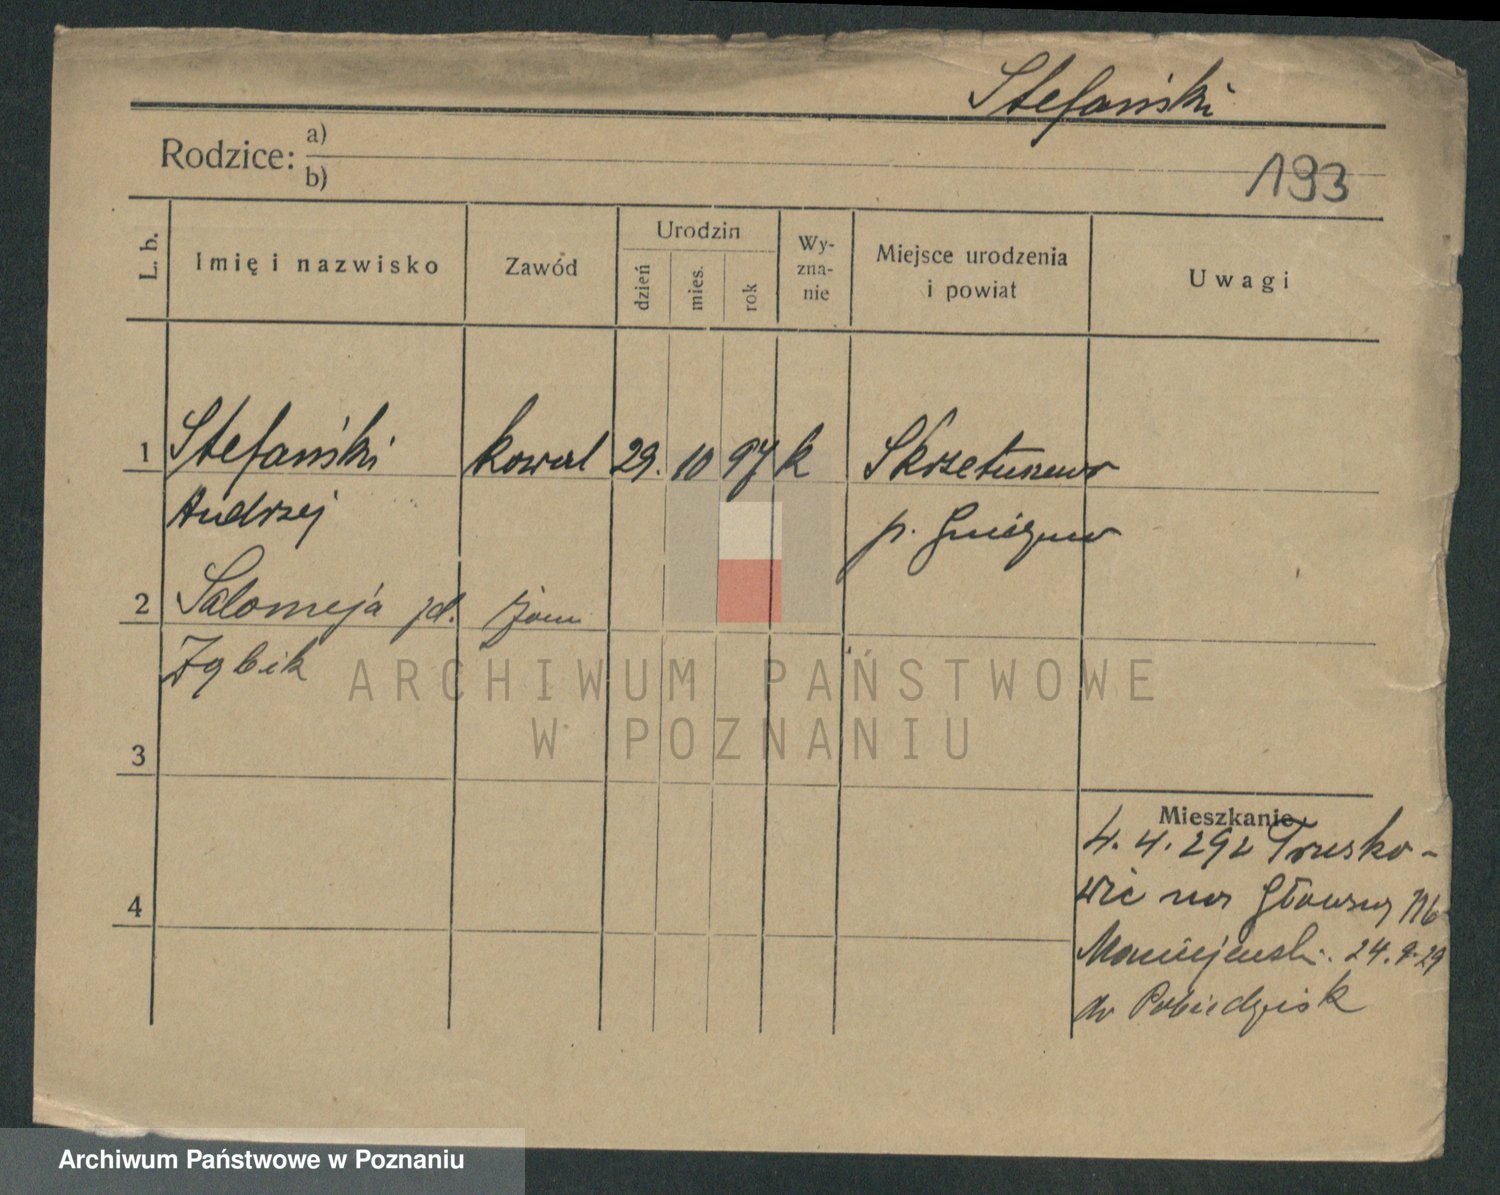 Stefański
Rodzice: a)
b)
193
L. b.
Imię i nazwisko
Zawód
Urodzin
dzień
mies.
rok
Wy-
zna-
nie
Miejsce urodzenia
i powiat
Uwagi
1 Stefański kowal 29. 10 97 k Skrzetuszewo
Andrzej p. Gniezno
2 Salomeja żona
Ząbik
3
4
Mieszkanie
4. 4. 292 Tresko-
wic na
Maciejewski. 24. 9. 29
do Pobiedzisk
ARCHIWUM PAŃSTWOWE
W POZNANIU
Archiwum Państwowe w Poznaniu